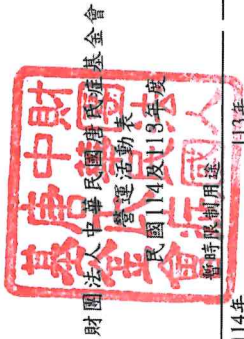 財團法人中華民國唐氏症基金會
營運活動表
民國114及113年度
暫時限制用途
114年
113年
財團法人
中華民國
唐氏症
基金會